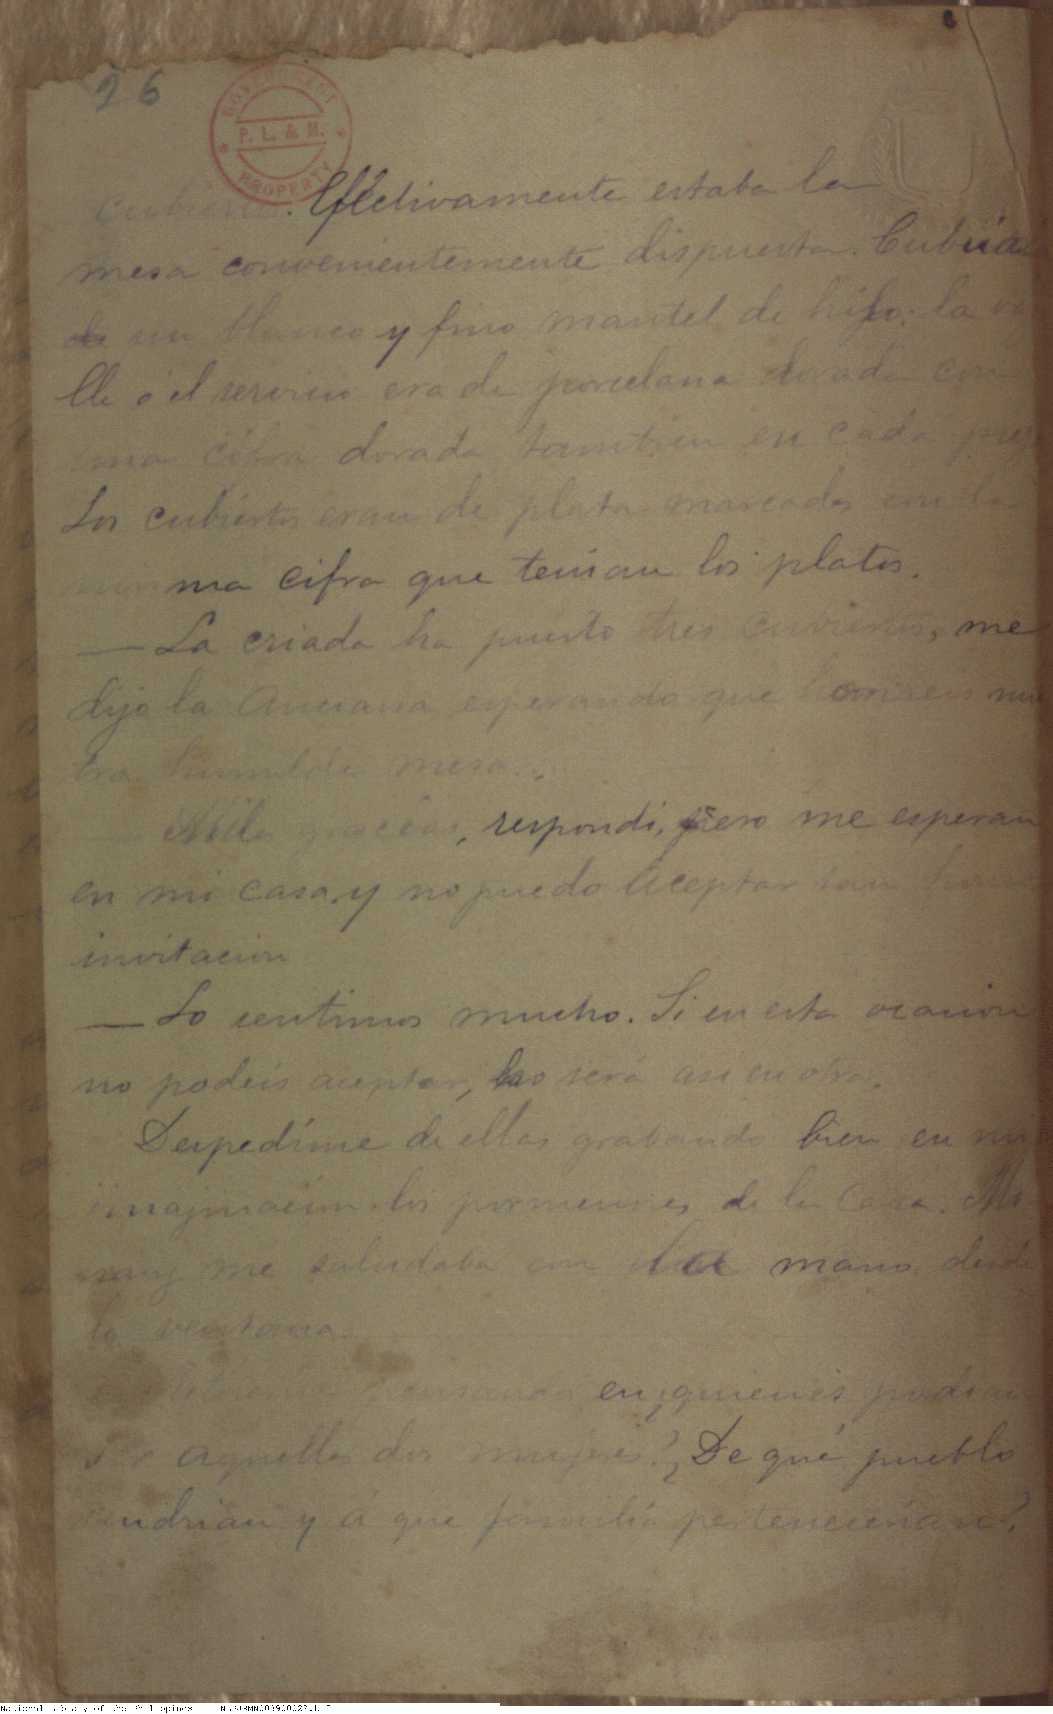 26
GOVERNMENT PROPERTY
P. L. & M.
Efectivamente estaba la
mesa convenientemente dispuesta. Cubria
un blanco y fino mantel de hilo: la va
lle ó el servicio era de porcelana dorada con
una cifra dorada tambien en cada
Los cubiertos eran de plata marcados con la
misma cifra que tenian los platos.
— La criada ha puesto tres cubiertos, me
dijo la Anciana esperando que honreis nues
tra humilde mesa.
Mil gracias, respondi, pero me esperan
en mi casa, y no puedo aceptar tan
invitacion
— Lo sentimos mucho. Si en esta ocasion
no podeis aceptar, no será asi en otra.
Despedíme de ellas grabando bien en mi
imajinacion los pormenores de la Casa.
me saludaba con la mano desde
la ventana.
pensando en ¿quienes podian
ser aquellas dos mujeres? ¿De qué pueblo
vendrian y á que familia pertenecerian?
National Library of the Philippines